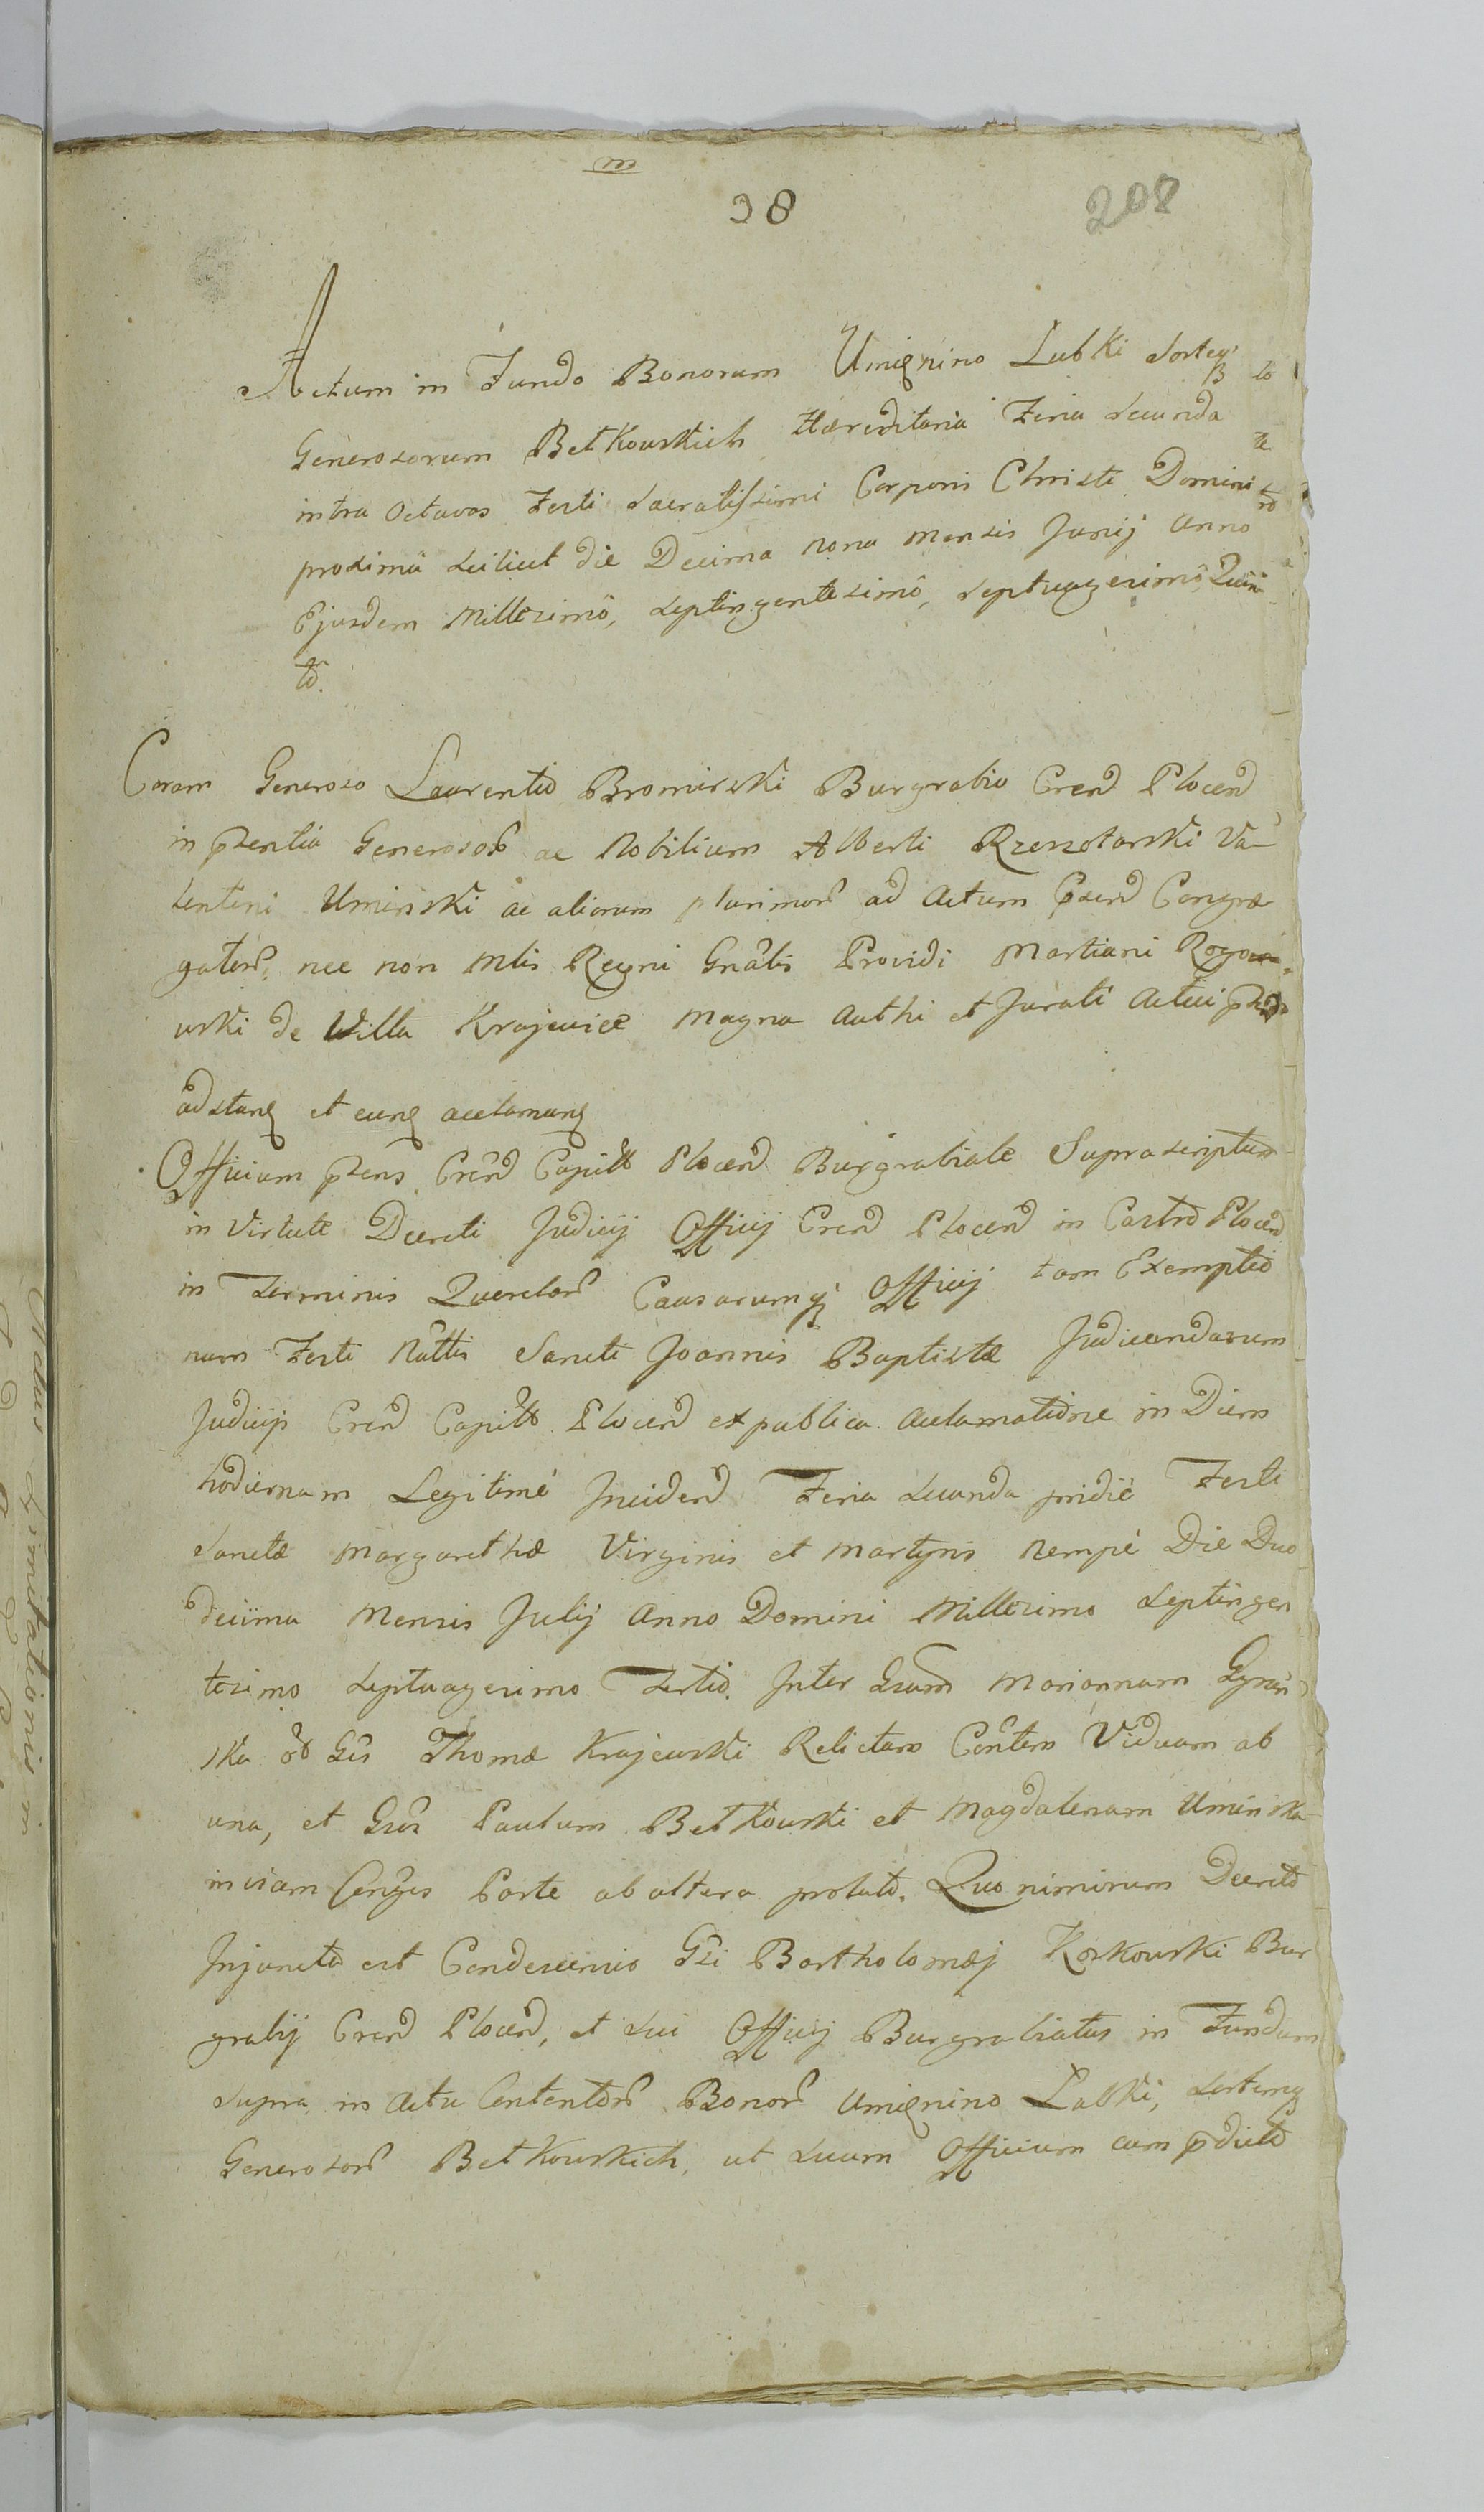 m
38
208
Actum in Fundo Bonorum Umięnino Lubki Sorteq
Generosorum Betkowskich Hæreditaria Feria Secunda
intra Octavas Festi Sacratissimi Corporis Christi Domini
proxima scilicet die Decima nona mensis Junij Anno
Ejusdem Millesimô, Septingentesimô, Septuagesimô Quin
tô.
Coram Generoso Laurentio Bromirski Burgrabio Cren Plocen
in pntia Generosor ac Nobilium Alberti Rzeszotarski Va-
lentini Uminski ac aliorum plurimor ad Actum psen Congre
gator, nec non Mlis Regni Gnâlis Providi Martiani
wski de Willa Krajewice Magna Authi et Jurati Actui
adstanq et eunq acclamanq
Officium psens Cren Capitt Plocen Burgrabiale Suprascriptum
in Virtute Decreti Judicij Officij Cren Plocen in Castro Plocen
in Terminis Querelar Causarumq Officij tam Exemptio
num Festi Nâttis Sancti Joannis Baptistæ Judicandarum
Judicijs Cren Capitt Plocen ex publica acclamatione in Diem
hodiernam Legitimè Inciden Feria Secunda pridiè Festi
Sanctæ Margarethæ Virginis et Martyris nempè Die Duo
decima Mensis Julij Anno Domini Millesimo Septingen
tesimo Septuagesimo Tertio. Inter Gsam Mariannam
ska oð Gsi Thomæ Krajewski Relictam Contem Viduam ab
una, et Gsos Paulum Betkowski et Magdalenam Uminska
inviam Conges Parte ab altera prolato. Quo nimirum Decreto
Injuncta est Condescensio Gsi Bartholomæj Korkowski Bur
grabij Cren Plocen, et sui Officij Burgrabiatus in Fundum
supra in Actu Contentor Bonor Umięnino Lubki, Sortemq
Generosor Betkowskich, ut suum Officium cum pdicto